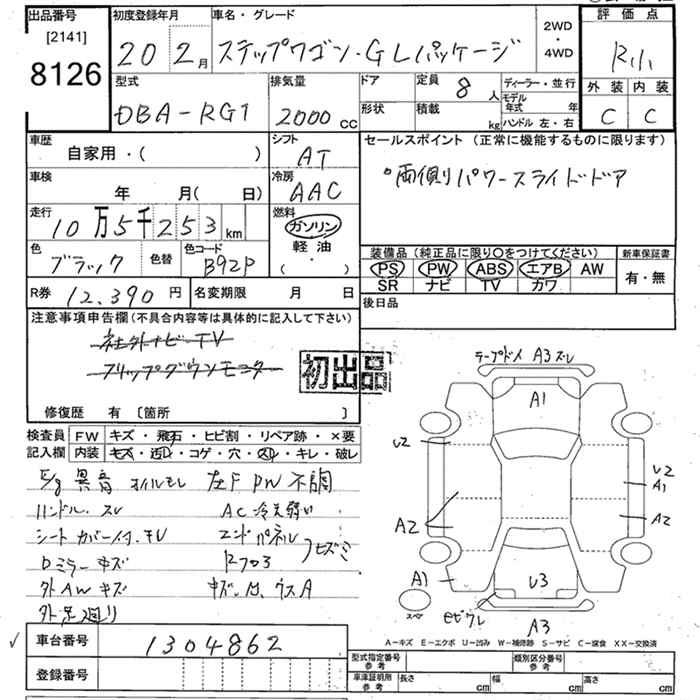 出品番号
[2141]
8126
初度登録年月
20 年 2 月
車名・グレード
ステップワゴン・GLパッケージ
2WD
・
4WD
評価点
外装 内装
C C
型式
DBA-RG1
排気量
2000 CC
ドア
形状
定員 8 人
積載 kg
ディーラー・並行
モデル年式 年
ハンドル 左・右
車歴
自家用・( )
シフト
AT
セールスポイント (正常に機能するものに限ります)
°両側パワースライドドア
車検
年 月( 日)
冷房
AAC
走行
10万5千253 km
燃料
ガソリン
軽油
( ・ )
色
ブラック
色替
色コード
B92P
装備品 (純正品に限り〇をつけてください)
PS PW ABS エアB AW
SR ナビ TV カワ
新車保証書
有・無
R券 12,390 円
名変期限 月 日
後日品
注意事項申告欄 (不具合内容等は具体的に記入して下さい)
社外ナビーTV
フリップダウンモニター
初出品
修復歴 有 [箇所 ]
検査員
記入欄
FW キズ・飛石・ヒビ割・リペア跡・×要
内装 キズ・汚レ・コゲ・穴・スレ・キレ・破レ
E/g 異音 オイルモレ 左F PW 不調
ハンドル スレ AC 冷え弱い
シートカバー付 エンドパネル
ドミラー キズ
外AW キズ キズ、凹、ウスA
外足廻り
A3 スレ
A1
U2
U2
A1
A2
A2
A1
U3
スペア
A3
A-キズ E-エクボ U-凹み W-補修跡 S-サビ C-腐食 XX-交換済
車台番号
1304862
登録番号
型式指定番号
参考
類別区分番号
参考
車庫証明用
参考
長さ cm
幅 cm
高さ cm